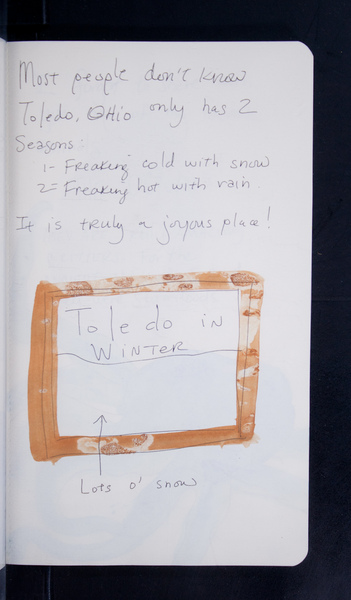 Most people don't know
Toledo, OHio only has 2
Seasons:
1- Freaking cold with snow
2= Freaking hot with rain.
It is truly a joyous place!
Toledo in
Winter
Lots o' snow